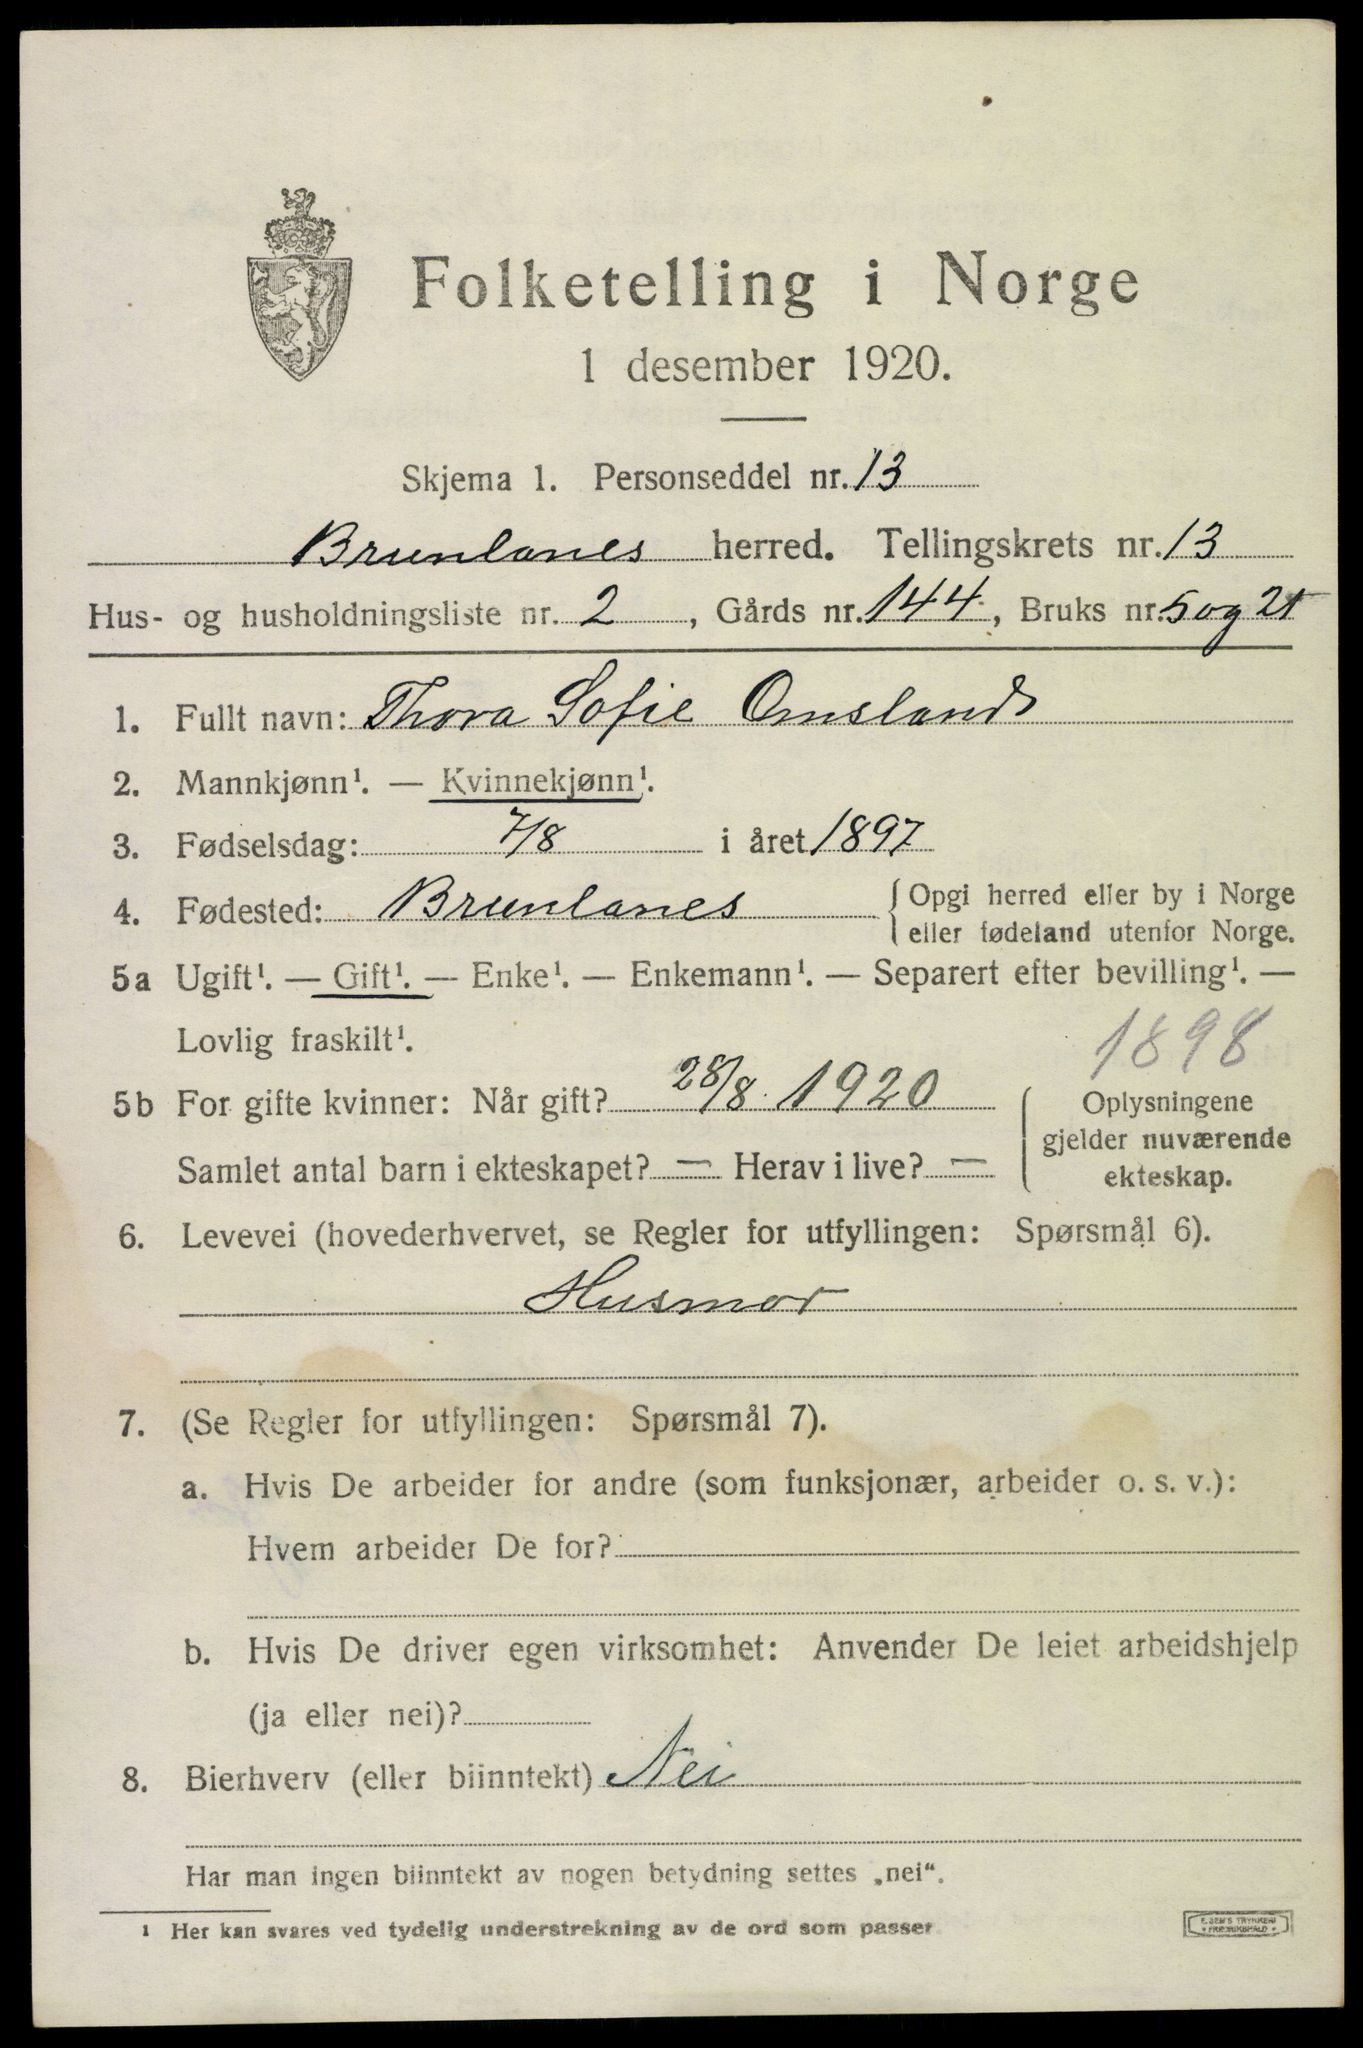 Folketelling i Norge
1 desember 1920.
Skjema 1. Personseddel nr. 13
Brunlanes herred. Tellingskrets nr. 13
Hus- og husholdningsliste nr. 2, Gårds nr. 144, Bruks nr. 5 og 21
1. Fullt navn: Thora Sofie Omsland
2. Mannkjønn¹. — Kvinnekjønn¹.
3. Fødselsdag: 7/8 i året 1897
4. Fødested: Brunlanes { Opgi herred eller by i Norge
eller fødeland utenfor Norge.
5a Ugift¹. — Gift¹. — Enke¹. — Enkemann¹. — Separert efter bevilling¹. —
Lovlig fraskilt¹.
1898
5b For gifte kvinner: Når gift? 28/8 1920
Samlet antal barn i ekteskapet? — Herav i live? —
Oplysningene
gjelder nuværende
ekteskap.
6. Levevei (hovederhvervet, se Regler for utfyllingen: Spørsmål 6).
Husmor
7. (Se Regler for utfyllingen: Spørsmål 7).
a. Hvis De arbeider for andre (som funksjonær, arbeider o. s. v.):
Hvem arbeider De for?
b. Hvis De driver egen virksomhet: Anvender De leiet arbeidshjelp
(ja eller nei)?
8. Bierhverv (eller biinntekt) Nei
Har man ingen biinntekt av nogen betydning settes „nei“.
¹ Her kan svares ved tydelig understrekning av de ord som passer.
E. SEM'S TRYKKERI
FREDRIKSHALD